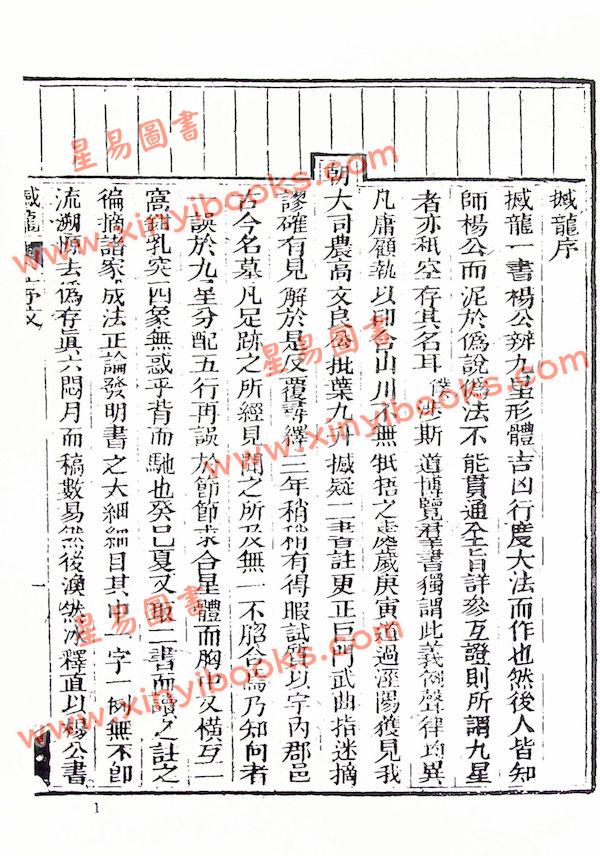 撼龍序
撼龍一書楊公辨九星形體吉凶行度大法而作也然後人皆知
師楊公而泥於僞說僞法不能貫通全旨詳參互證則所謂九星
者亦秖空存其名耳僕 斯道博覽羣書獨謂此義例聲律均異
凡庸顧執以印合山川不無牴捂之處歲庚寅道過涇陽獲見我
朝大司農高文良公批葉九升撼疑二書首註更正巨門武曲指迷摘
謬確有見解於是反覆尋繹三年稍稍有得暇試質以宇內郡邑
古今名墓凡足跡之所經見聞之所及無一不脗合焉乃知向者一
誤於九星分配五行再誤於節節求合星體而胸中又橫互一
窩鉗乳突四象無惑乎背而馳也癸巳夏又取二書而讀之註之
徧摘諸家成法正論發明書之大綱細目其中一字一例無不卽
流溯源去僞存眞六閱月而稿數易然後渙然冰釋直以楊公書
撼龍 序文 一
星易圖書
www.xinyibooks.com
星易圖書
www.xinyibooks.com
星易圖書
www.xinyibooks.com
1